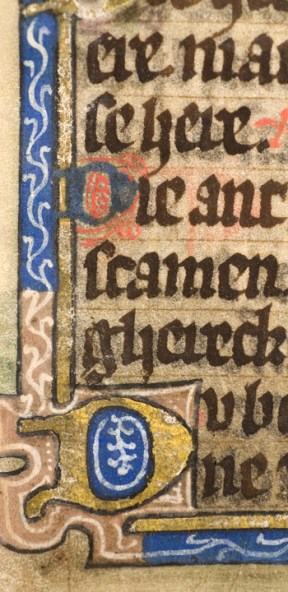 ere mar
se here.
Die anc
scamen.
gherech
D v be
ne